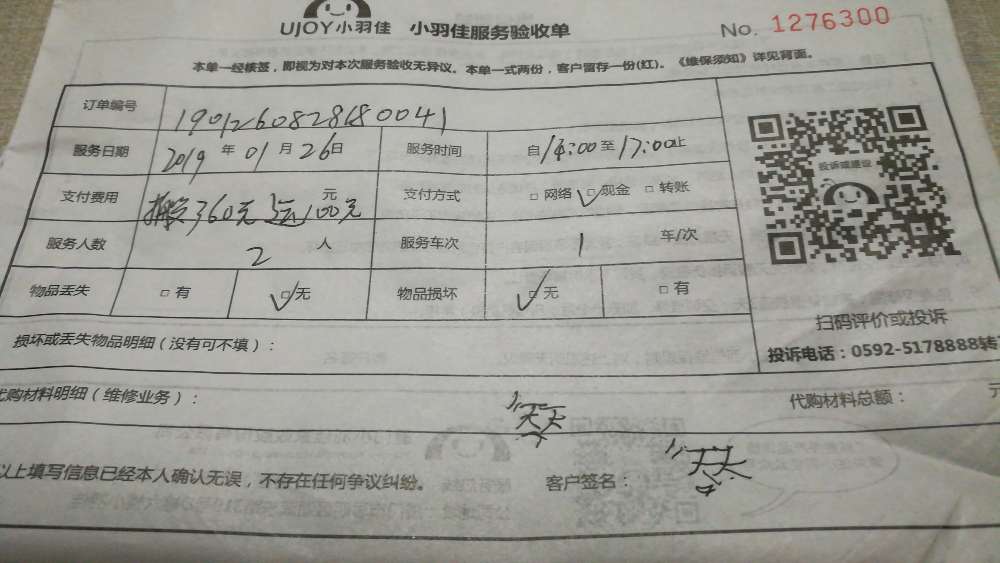 UJOY小羽佳 小羽佳服务验收单
No. 1276300
本单一经核签，即视为对本次服务验收无异议。本单一式两份，客户留存一份(红)。《维保须知》详见背面。
订单编号 1901260828680041
服务日期 2019 年 01 月 26 日 服务时间 自 14:00 至 17:00 止
支付费用 360元 100元 元 支付方式 □ 网络 □ 现金 □ 转账
服务人数 2 人 服务车次 1 车/次
物品丢失 □ 有 □ 无 物品损坏 □ 无 □ 有
投诉或建议
扫码评价或投诉
投诉电话：0592-5178888转
损坏或丢失物品明细（没有可不填）：
代购材料明细（维修业务）： 代购材料总额： 元
以上填写信息已经本人确认无误，不存在任何争议纠纷。 客户签名：